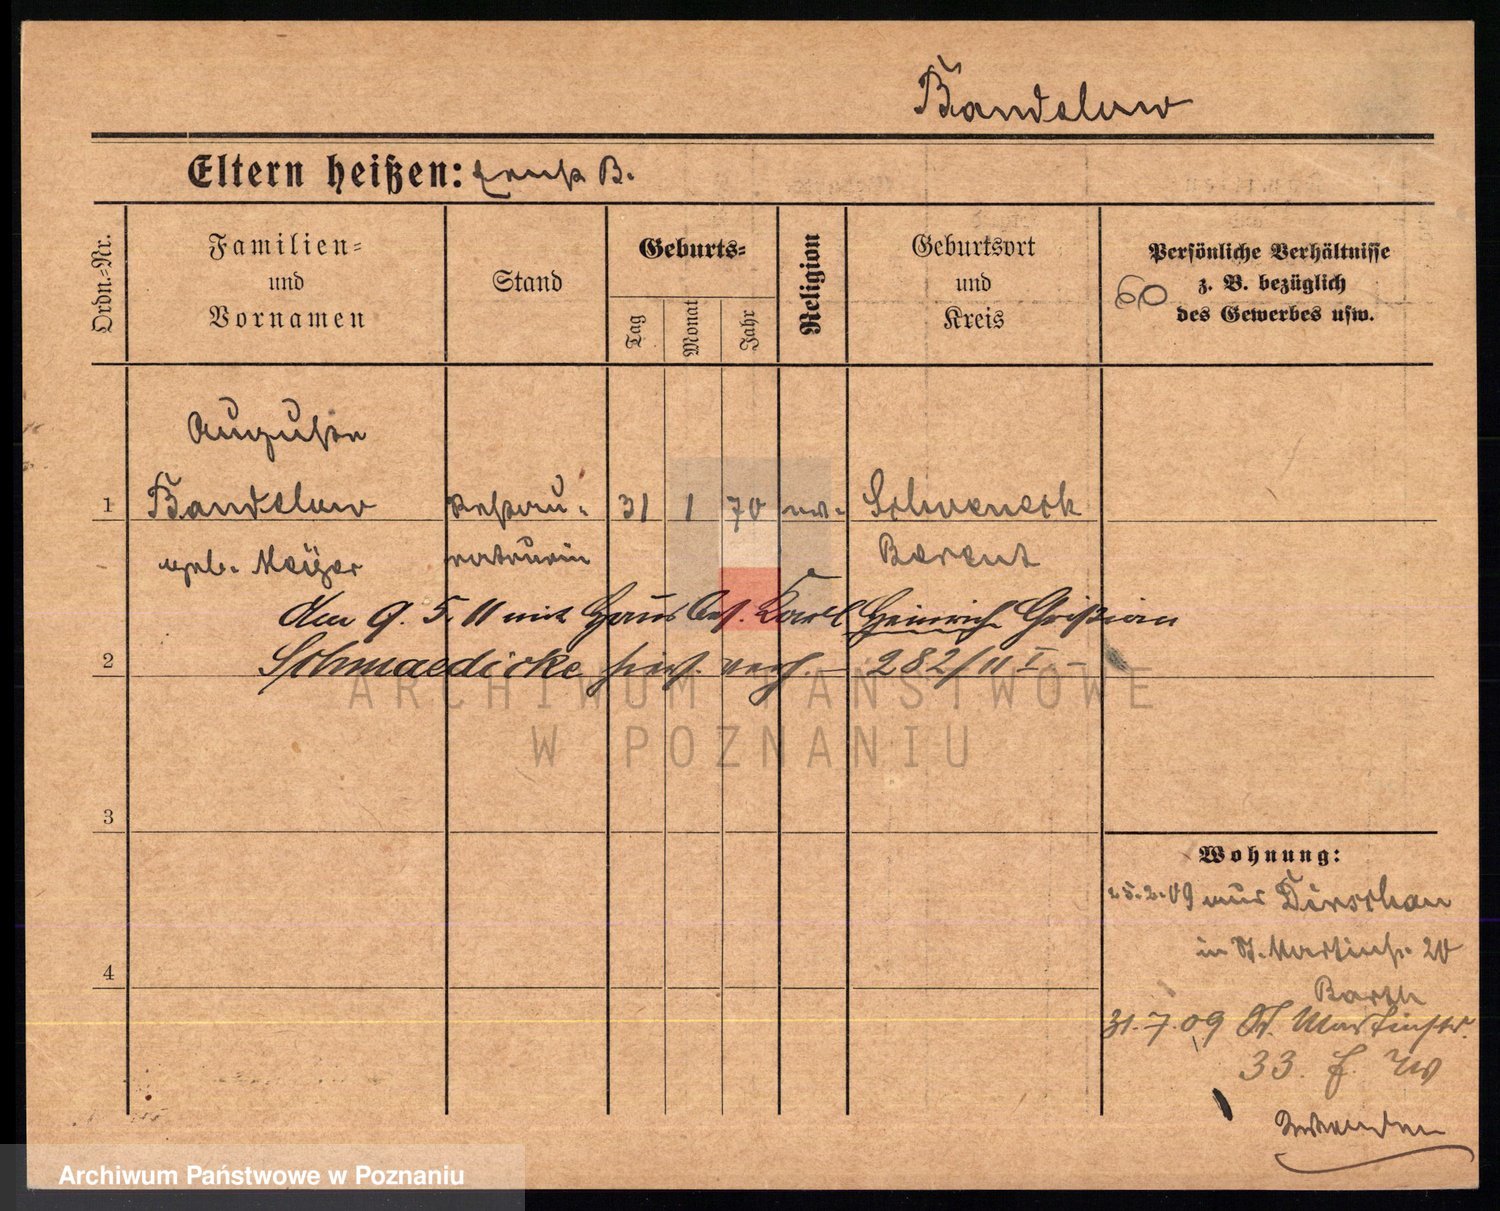 Bandelow
Eltern heißen: Ernst B.
Ordn.-Nr.
Familien-
und
Vornamen
Stand
Geburts-
Tag
Monat
Jahr
Religion
Geburtsort
und
Kreis
Persönliche Verhältnisse
z. B. bezüglich
des Gewerbes usw.
60
Auguste
1 Bandelow Restau- 31 1 70 ev. Schoeneck
geb. Meyer rateurin Berent
Am 9. 5. 11 mit Hausbes. Karl Heinrich Christian
2 Schmaedicke hies. verh. – 282/11 I –
3
Wohnung:
25.2.09 aus Dirschau
in St. Martinstr. 20
4
Barth
31.7.09 St. Martinstr.
33. f. W
wenden
ARCHIWUM PAŃSTWOWE
W POZNANIU
Archiwum Państwowe w Poznaniu